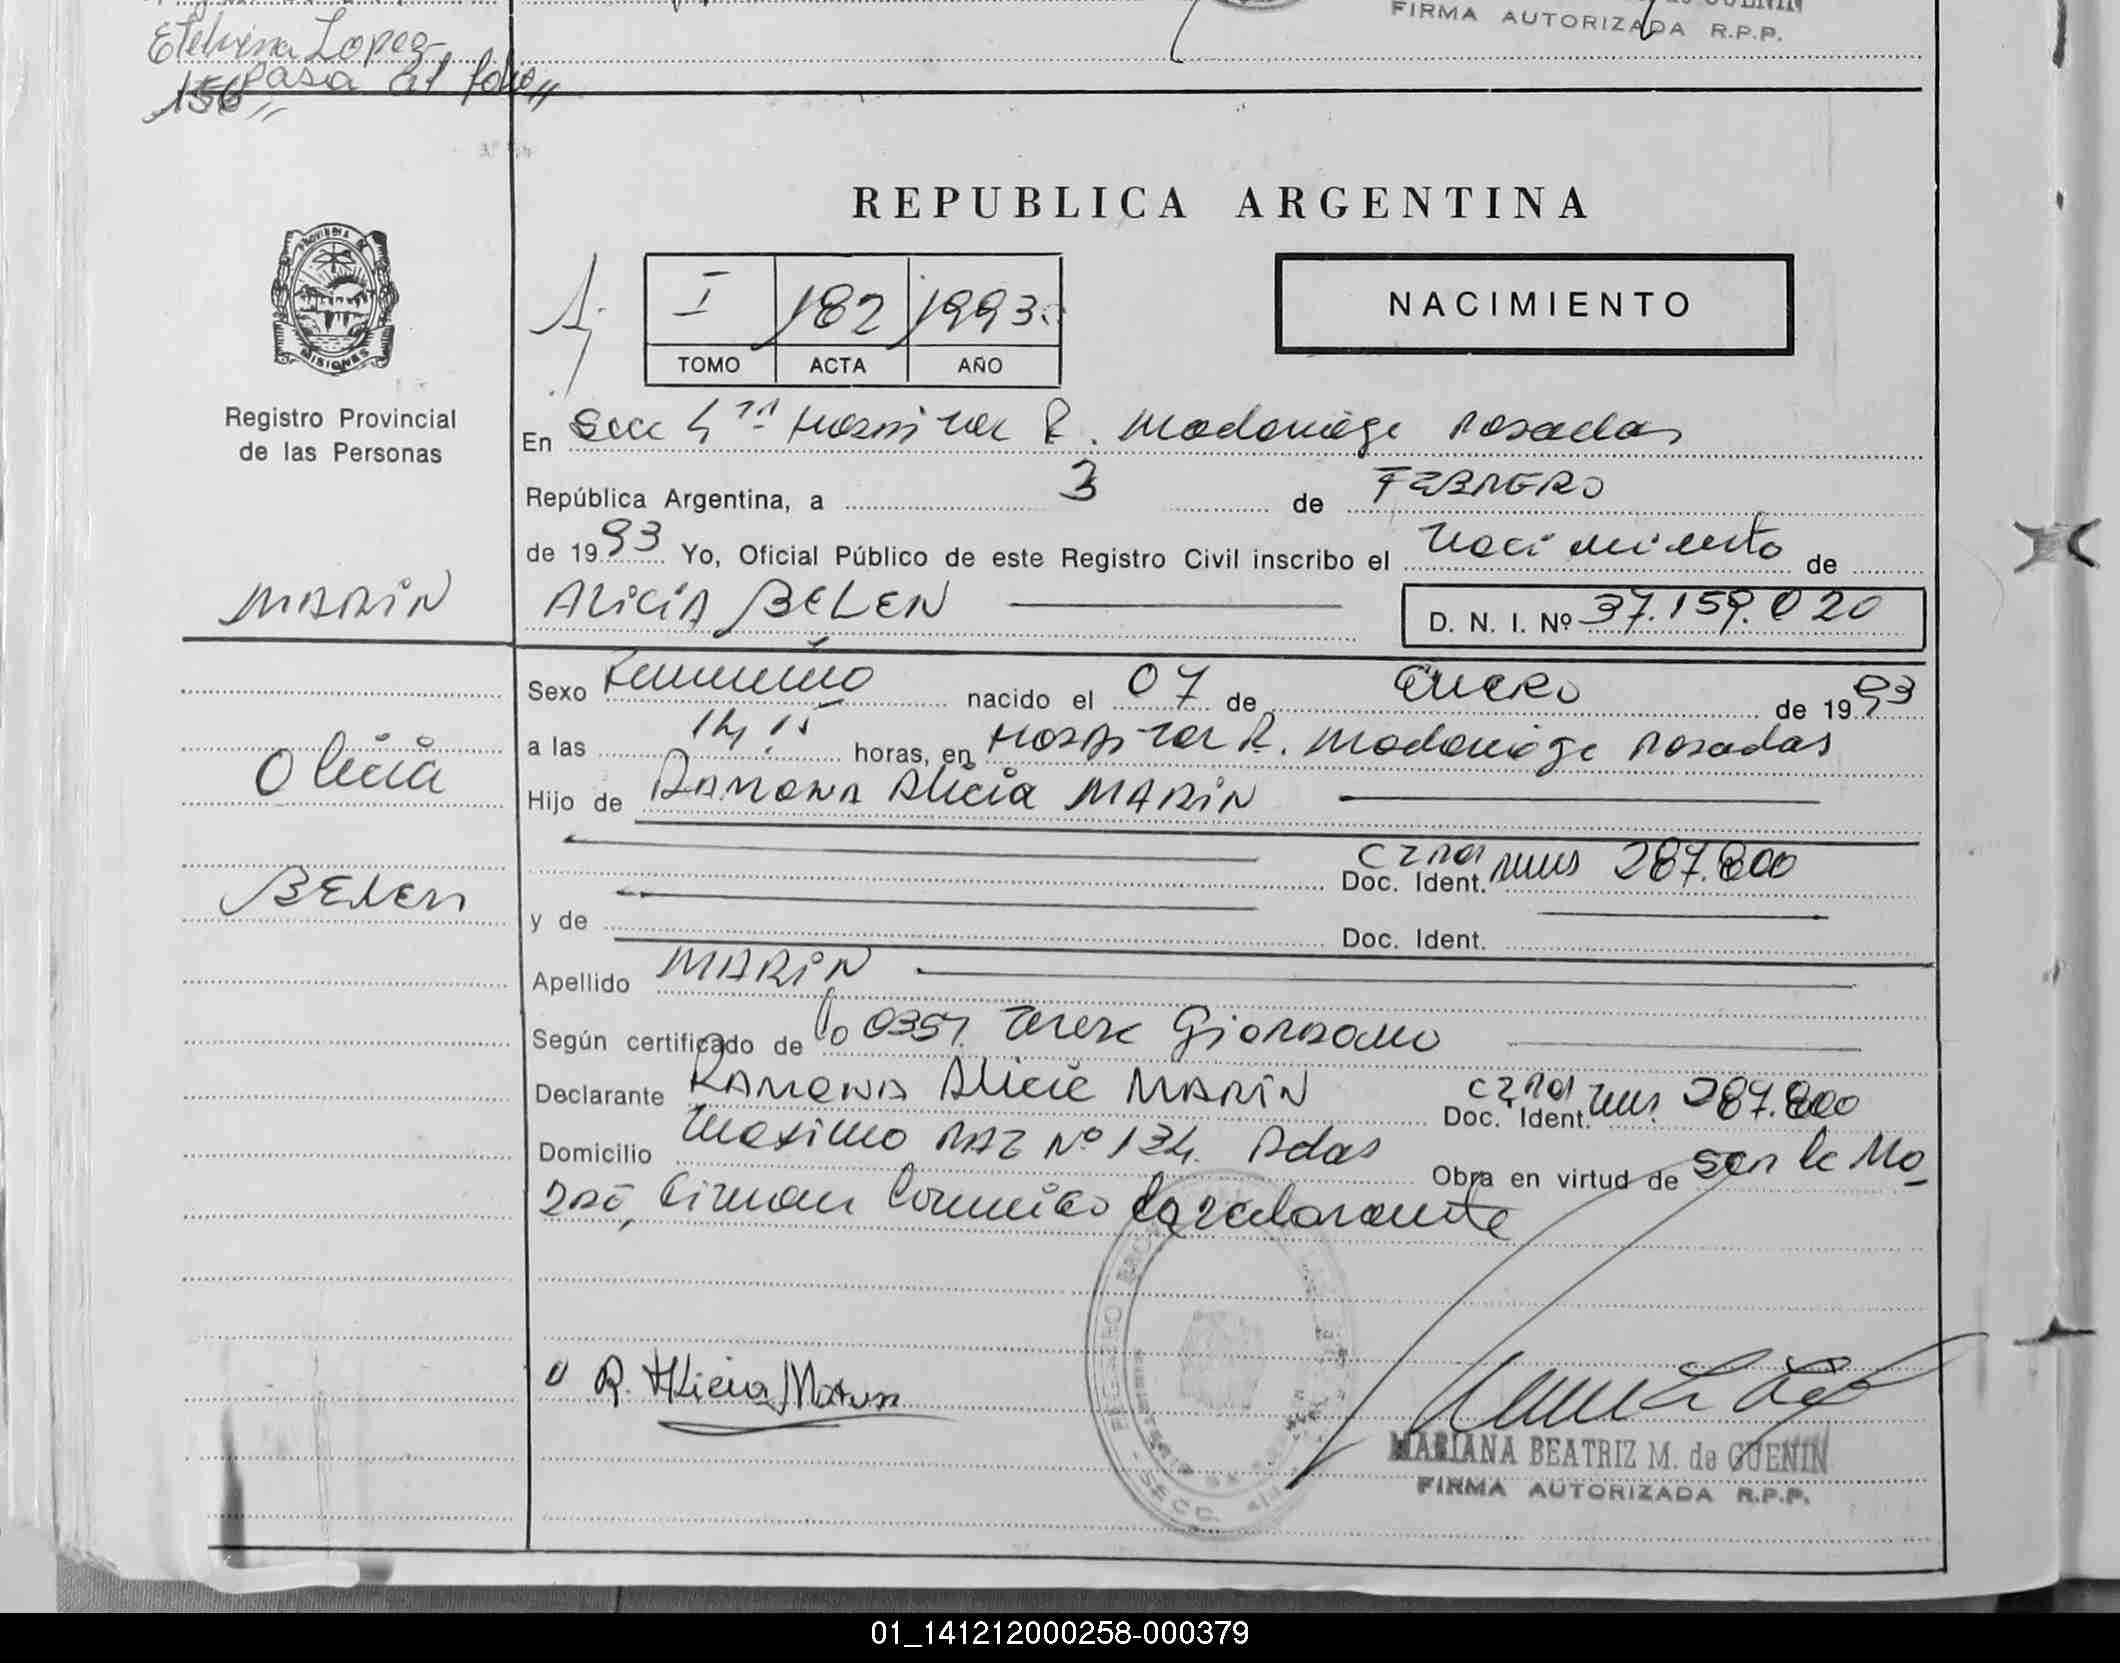 FIRMA AUTORIZADA R.P.P.
Etelvina Lopez
Pasa al folio
156
REPUBLICA ARGENTINA
PROVINCIA DE
MISIONES
I 182 1993
TOMO ACTA AÑO
NACIMIENTO
Registro Provincial
de las Personas
En Secc 4ta Hospital R. Madariaga Posadas
República Argentina, a 3 de FEBRERO
de 1993 Yo, Oficial Público de este Registro Civil inscribo el Nacimiento de
MARIN ALICIA BELEN D. N. I. Nº 37.159.020
Sexo Femenino nacido el 07 de ENERO de 1993
a las 14,15 horas, en Hospital R. Madariaga Posadas
Alicia
Hijo de RAMONA Alicia MARIN
Doc. Ident. 287.800
BELEN
y de Doc. Ident.
Apellido MARIN
Según certificado de 0351 Giordano
Declarante RAMONA Alicia MARIN Doc. Ident. 287.800
Domicilio Maximo PAZ Nº 134. Pdas Obra en virtud de ser la Ma
dre, Firman Conmigo la declarante
R. Alicia Marin
MARIANA BEATRIZ M. de GUENIN
FIRMA AUTORIZADA R.P.P.
01_141212000258-000379